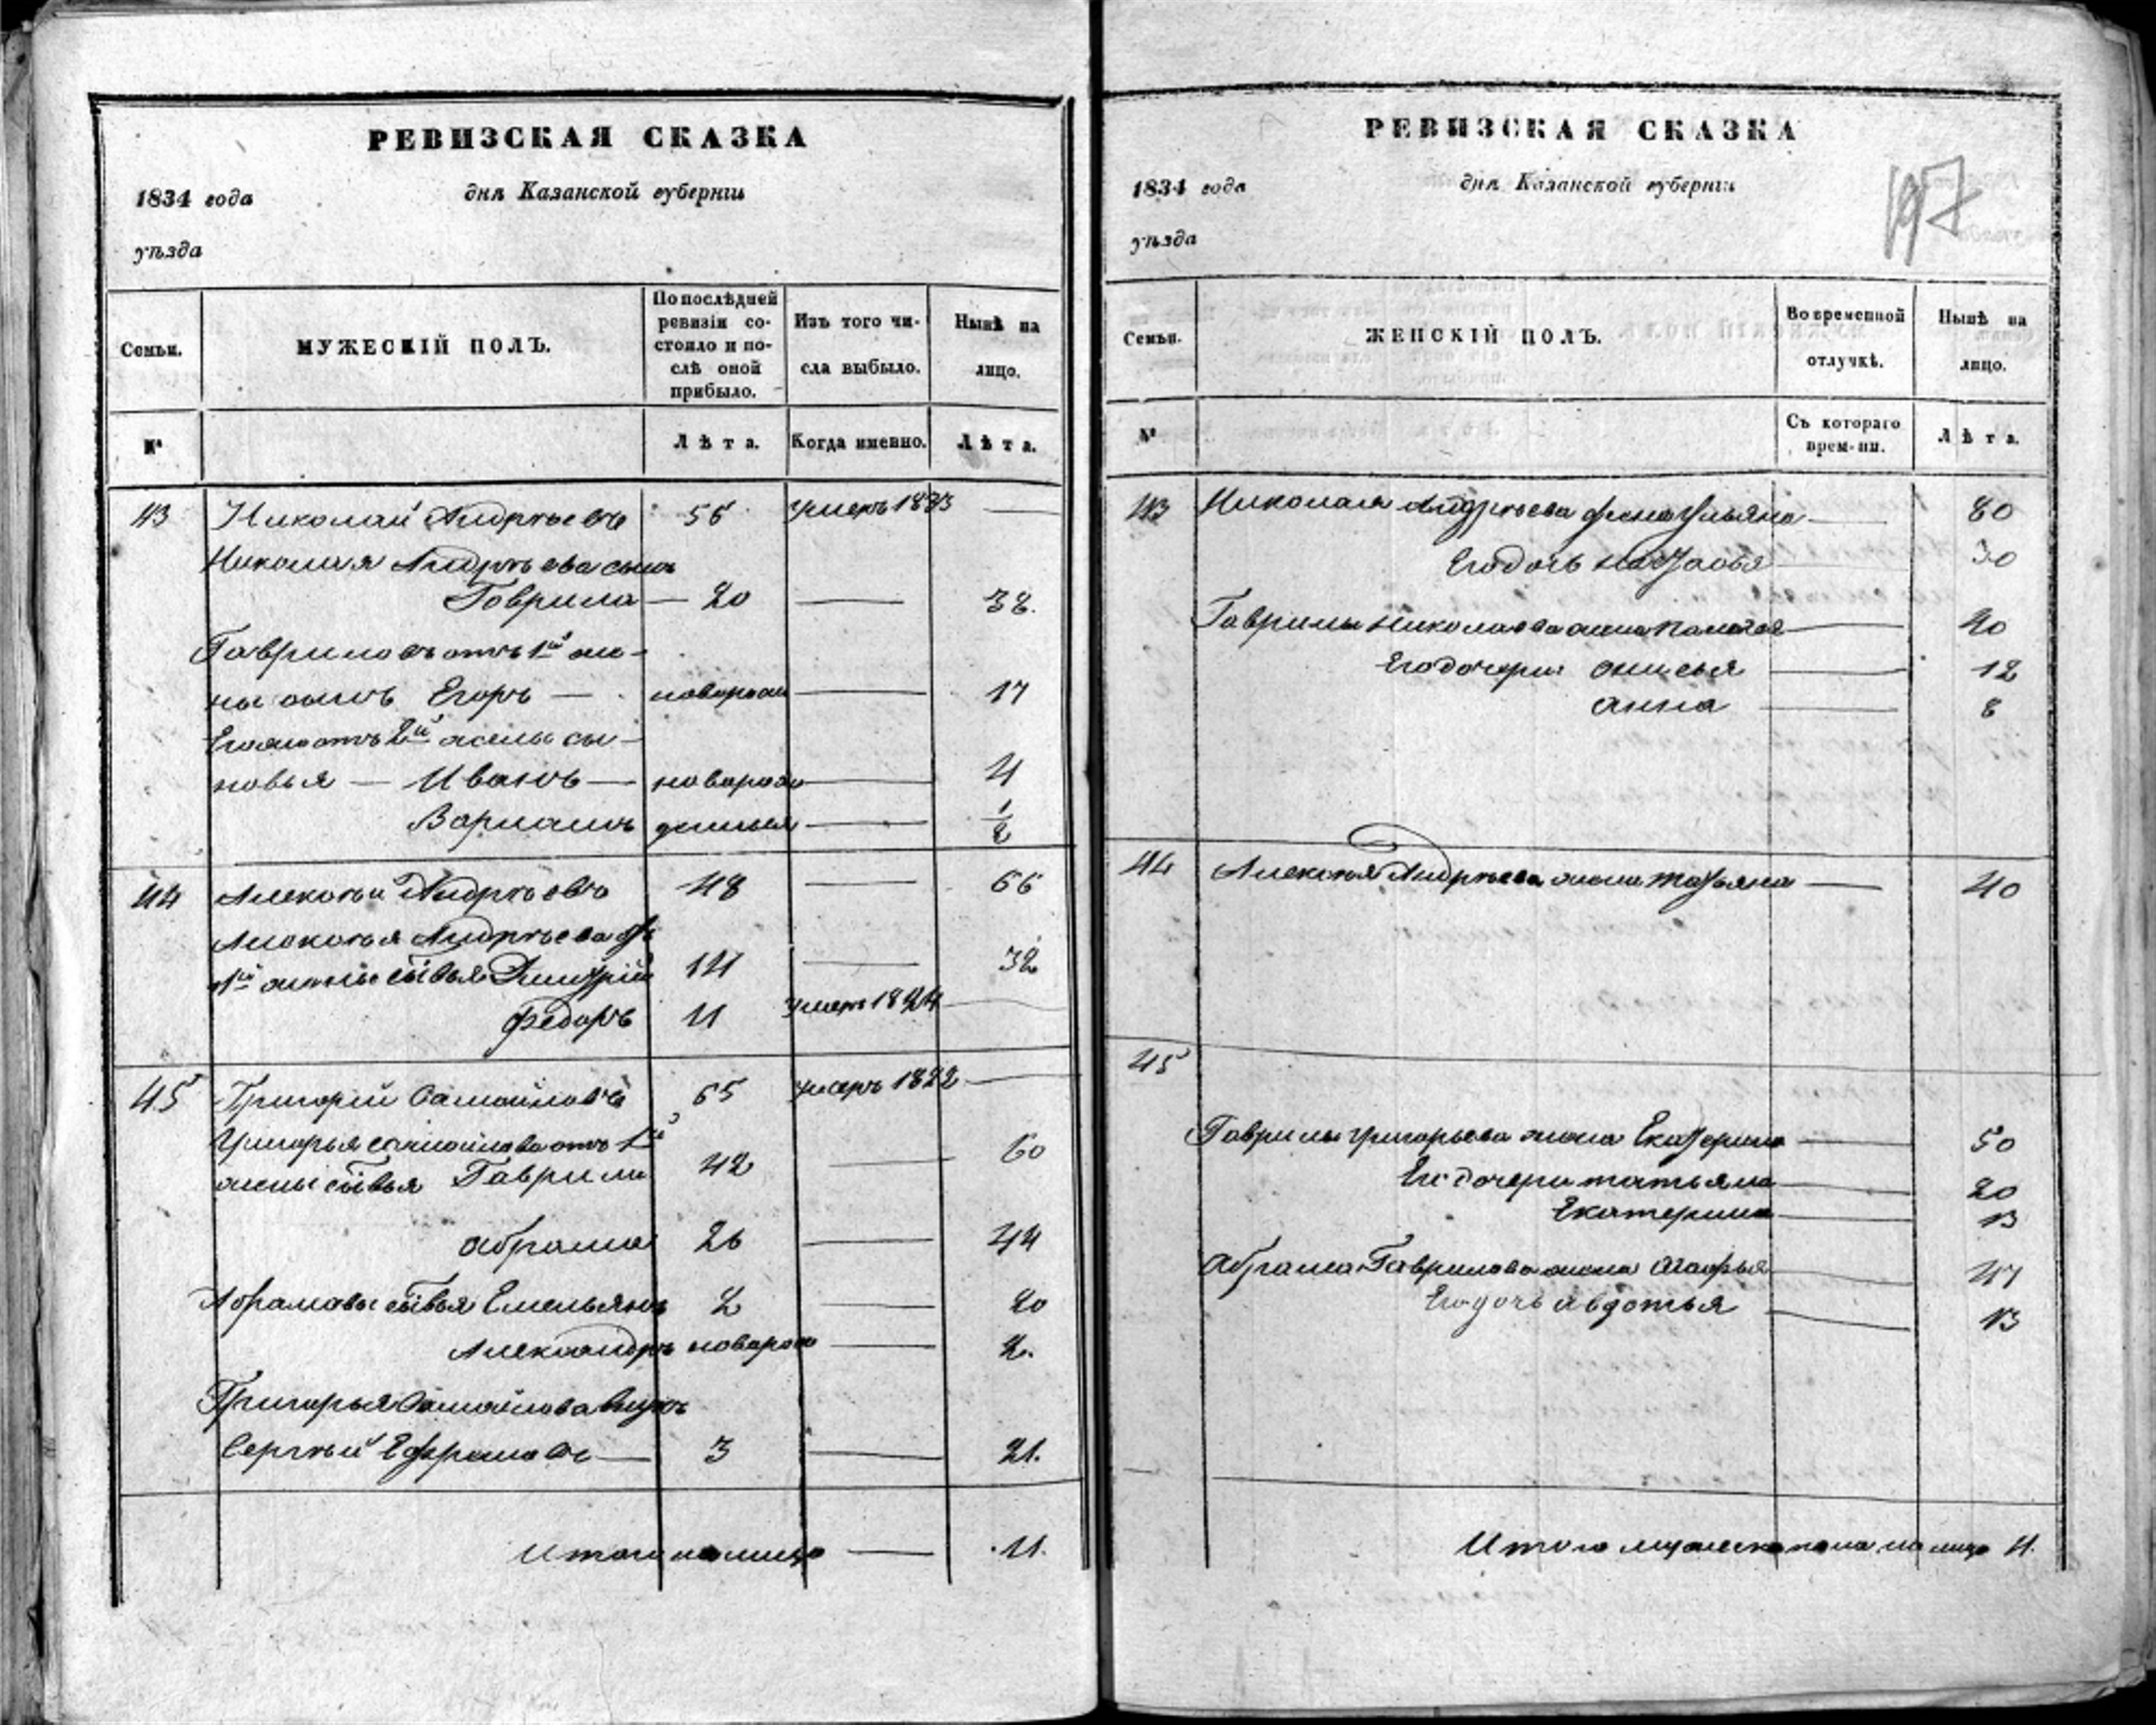 РЕВИЗСКАЯ СКАЗКА
1834 года дня Казанской губерніи
уѣзда
Семьи.
МУЖЕСКІЙ ПОЛЪ.
По послѣдней
ревизіи со-
стояло и по-
слѣ оной
прибыло.
Изъ того чи-
сла выбыло.
Нынѣ на
лицо.
№
Лѣта.
Когда именно.
Лѣта.
43 Николай Андрѣевъ 56 умеръ 1833 —
Николая Андрѣева сынъ
Гаврила — 20 — 38.
Гавриловъ отъ 1й же-
ны сынъ Егоръ — новорож 17
Его же отъ 2й жены сы-
новья — Иванъ — новорож — 4
Варламъ денныя — 1/2
44 Алексѣй Андрѣевъ 48 — 66
Алексѣя Андрѣева отъ
1й жены сывья Дмитрій 14 — 32
Федоръ 11 умеръ 1824 —
45 Григорій Самойловъ 65 умеръ 1822 —
Григорья Самойлова отъ 1й
жены сывья Гаврила 42 — 60
Абрамъ 26 — 44
Абрамовы сывья Емельянъ 2 — 20
Александръ новорож — 2.
Григорья Самойлова внукъ
Сергѣй Ефремовъ — 3 — 21.
Итого на лицо — 11.
РЕВИЗСКАЯ СКАЗКА
197
1834 года дня Казанской губерніи
уѣзда
Семьи.
ЖЕНСКІЙ ПОЛЪ.
Во временной
отлучкѣ.
Нынѣ на
лицо.
№
Съ котораго
врем-ни.
Лѣта.
43 Николая Андрѣева жена Ульяна — 80
Его дочь Наталья — 30
Гаврилы Николаева жена Палагея — 40
Его дочери Анисья — 12
Анна — 8
44 Алексѣя Андрѣева жена Татьяна — 40
45
Гаврилы Григорьева жена Екатерина — 50
Его дочери Татьяна — 20
Екатерина — 13
Абрама Гаврилова жена Агафья — 47
Его дочь Авдотья — 13
Итого женска пола на лицо 11.